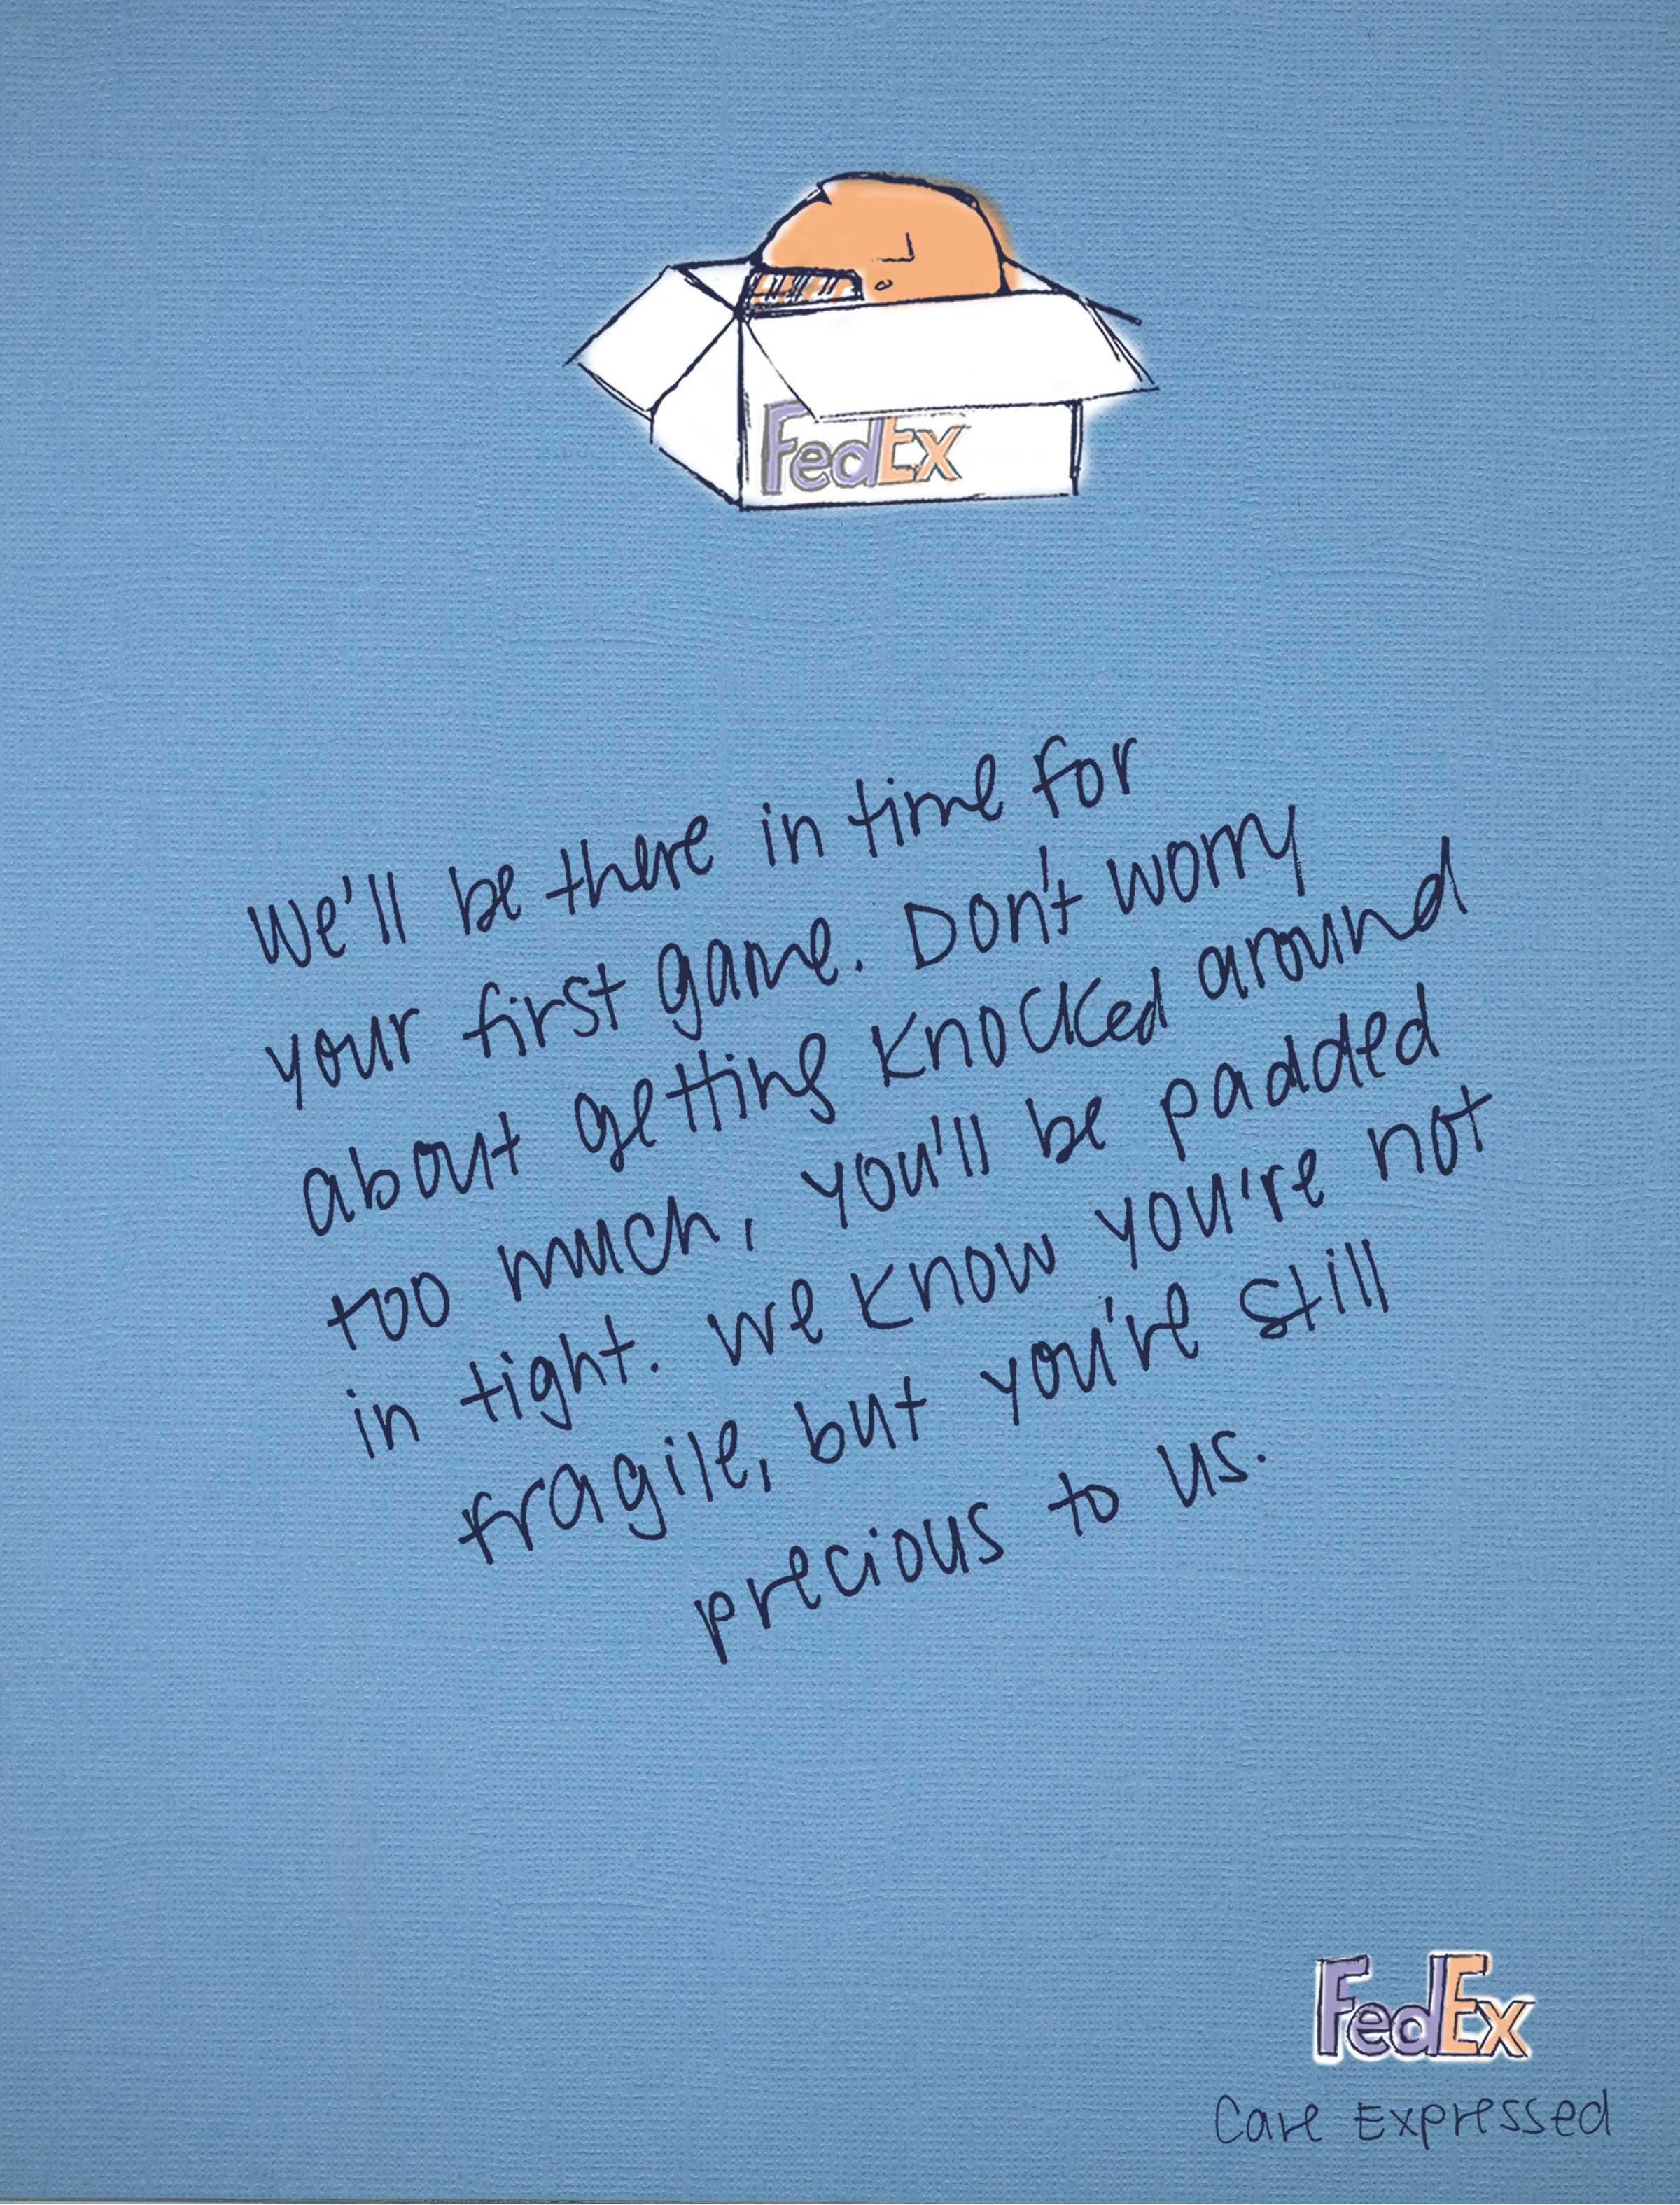 FedEx
We'll be there in time for
your first game. Don't worry
about getting knocked around
too much, you'll be padded
in tight. We know you're not
fragile, but you're still
precious to us.
FedEx
Care Expressed